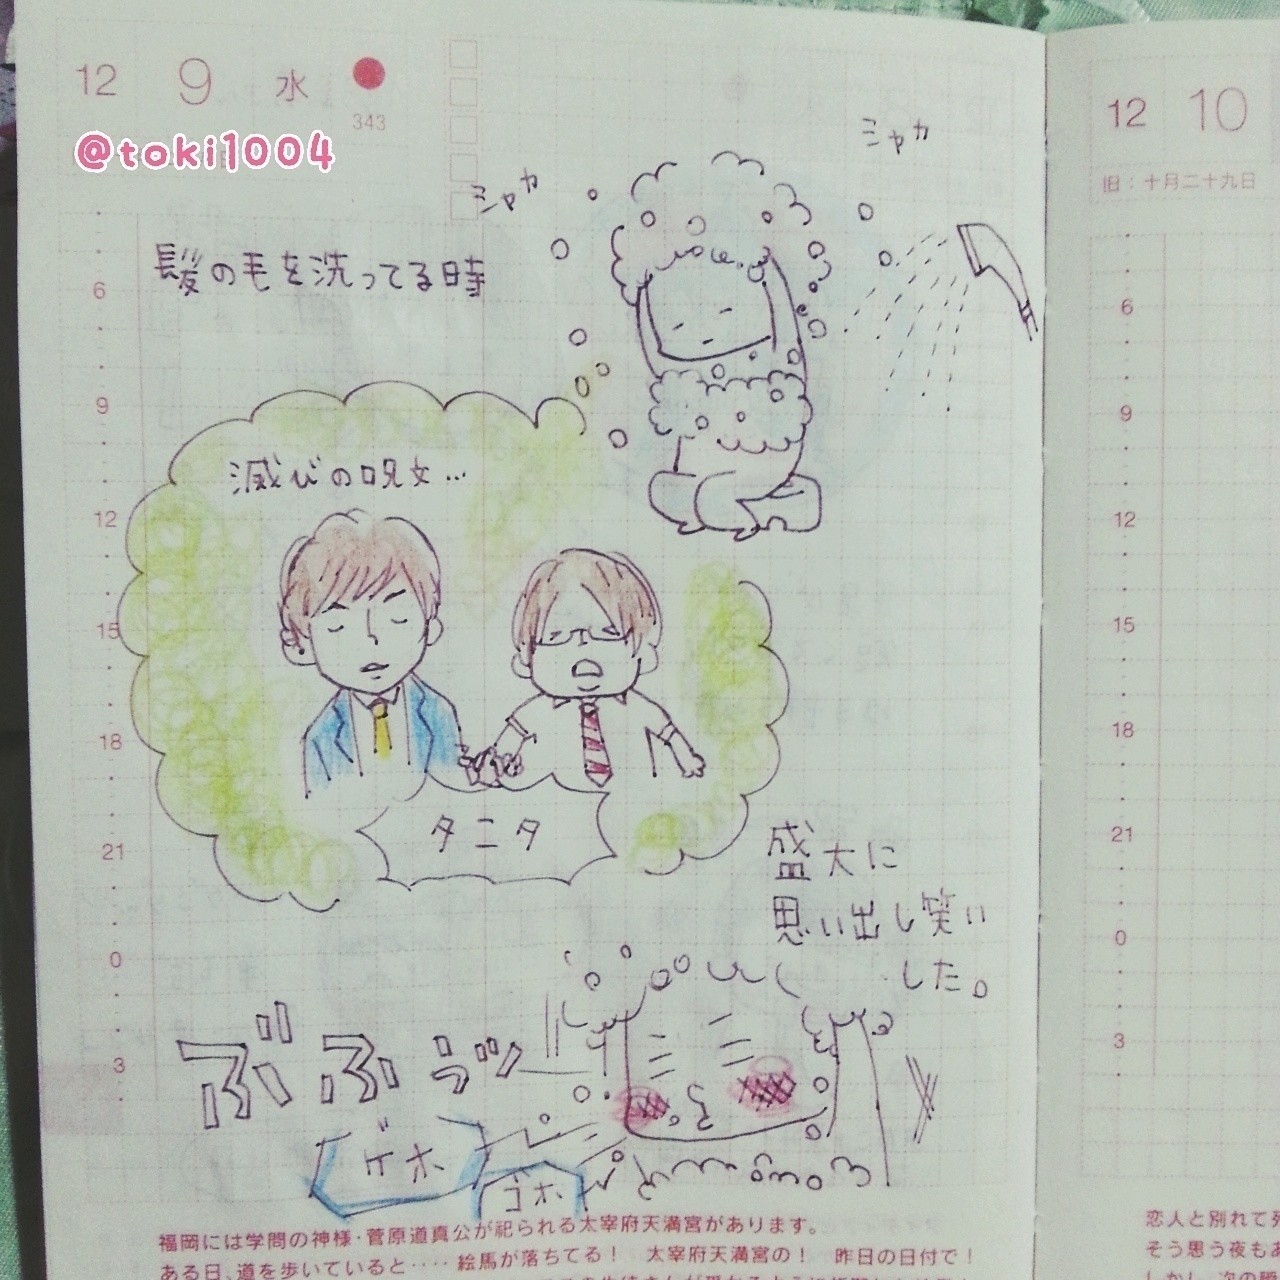 12 9 水
343
@toki1004
12 10
旧：十月二十九日
シャカ
シャカ
髪の毛を洗ってる時
滅びの呪文…
タニタ
盛大に
思い出し笑い
した。
ぶふぅッ
ゲホ
ゴホ
6
9
12
15
18
21
0
3
6
9
12
15
18
21
0
3
福岡には学問の神様・菅原道真公が祀られる太宰府天満宮があります。
ある日、道を歩いていると‥‥ 絵馬が落ちてる！ 太宰府天満宮の！ 昨日の日付で！
恋人と別れて
そう思う夜も